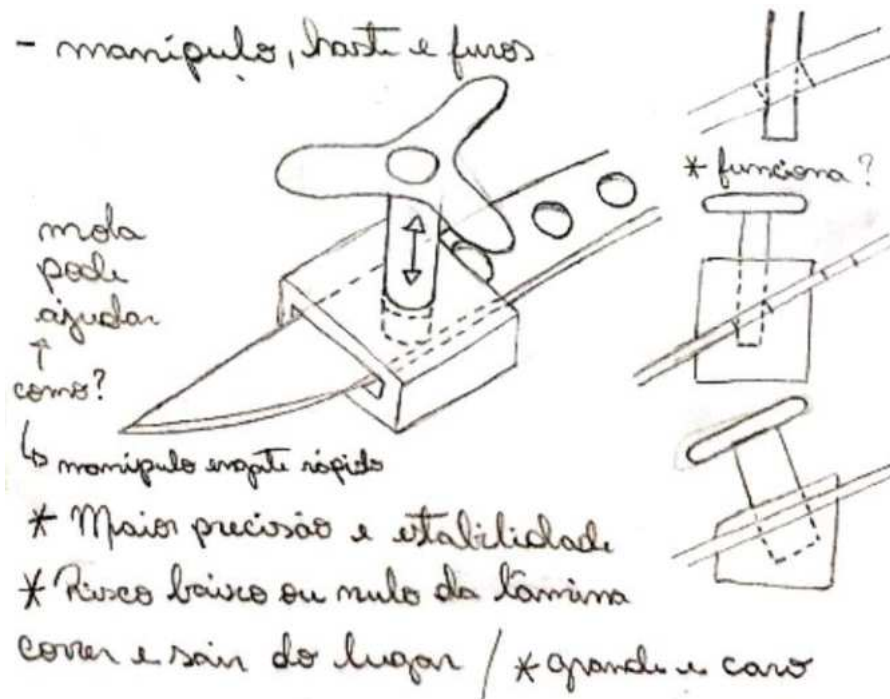 - manípulo, haste e furos
* funciona?
mola
pode
ajudar
↑
como?
↳ manípulo engate rápido
* Maior precisão e estabilidade
* Risco baixo ou nulo da lâmina
correr e sair do lugar / * grande e caro